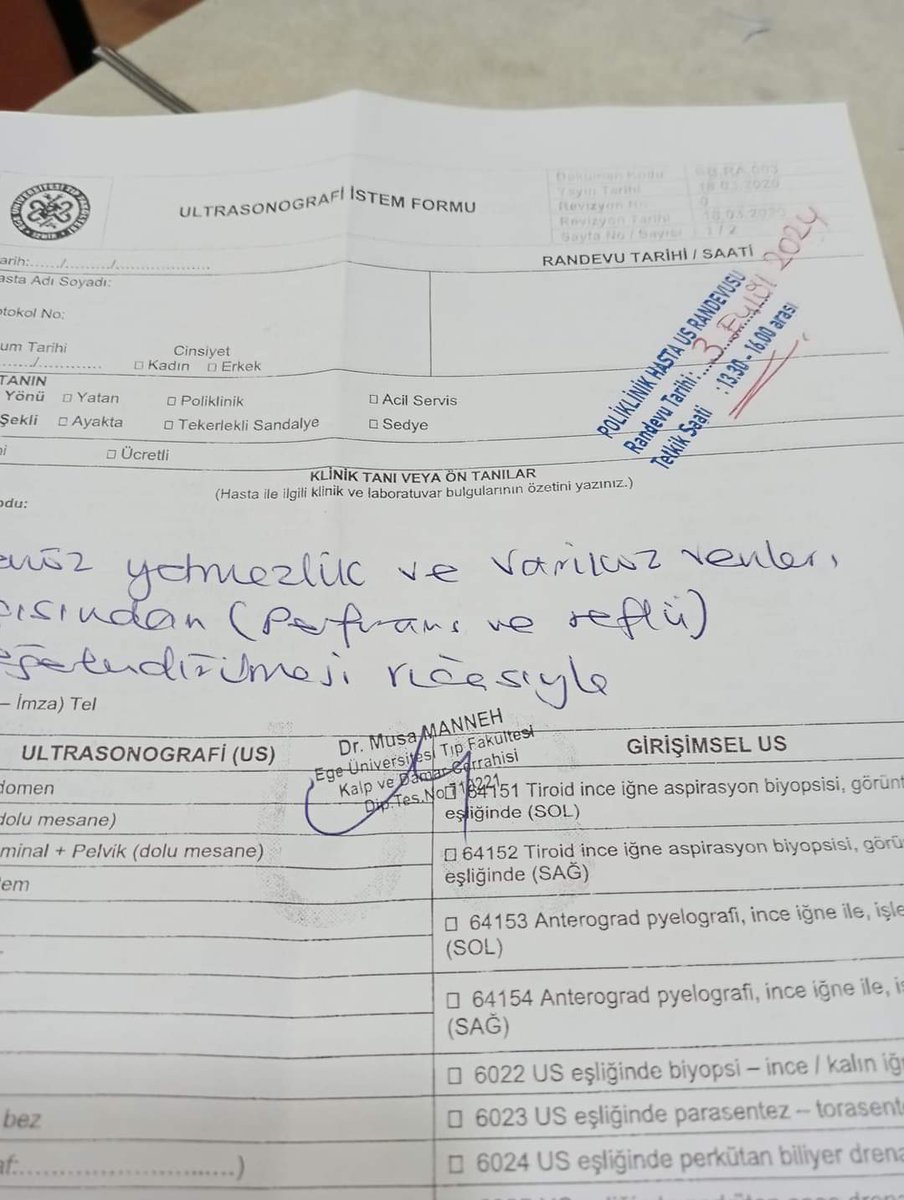 ULTRASONOGRAFİ İSTEM FORMU
Doküman Kodu
Yayın Tarihi 18.03.2020
Revizyon No 0
Revizyon Tarihi 18.03.2020
Sayfa No / Sayısı 1 / 2
RANDEVU TARİHİ / SAATİ
arih:...../........../......................
asta Adı Soyadı:
tokol No:
um Tarihi
Cinsiyet
□ Kadın □ Erkek
POLİKLİNİK HASTA US RANDEVUSU
Randevu Tarihi: 3 Eylül 2024
Tetkik Saati : 13.30 - 16.00 arası
TANIN
Yönü □ Yatan □ Poliklinik □ Acil Servis
Şekli □ Ayakta □ Tekerlekli Sandalye □ Sedye
□ Ücretli
KLİNİK TANI VEYA ÖN TANILAR
(Hasta ile ilgili klinik ve laboratuvar bulgularının özetini yazınız.)
odu:
yetmezlik ve varikoz venleri
açısından (perforans ve reflü)
değerlendirilmesi ricasıyla
– İmza) Tel
Dr. Musa MANNEH
Ege Üniversitesi Tıp Fakültesi
Kalp ve Damar Cerrahisi
Dip.Tes.No:
ULTRASONOGRAFİ (US)
GİRİŞİMSEL US
domen
dolu mesane)
minal + Pelvik (dolu mesane)
lem
bez
af:..........................)
□ 64151 Tiroid ince iğne aspirasyon biyopsisi, görünt
eşliğinde (SOL)
□ 64152 Tiroid ince iğne aspirasyon biyopsisi, görü
eşliğinde (SAĞ)
□ 64153 Anterograd pyelografi, ince iğne ile, işle
(SOL)
□ 64154 Anterograd pyelografi, ince iğne ile, i
(SAĞ)
□ 6022 US eşliğinde biyopsi – ince / kalın iğ
□ 6023 US eşliğinde parasentez – torasent
□ 6024 US eşliğinde perkütan biliyer drena